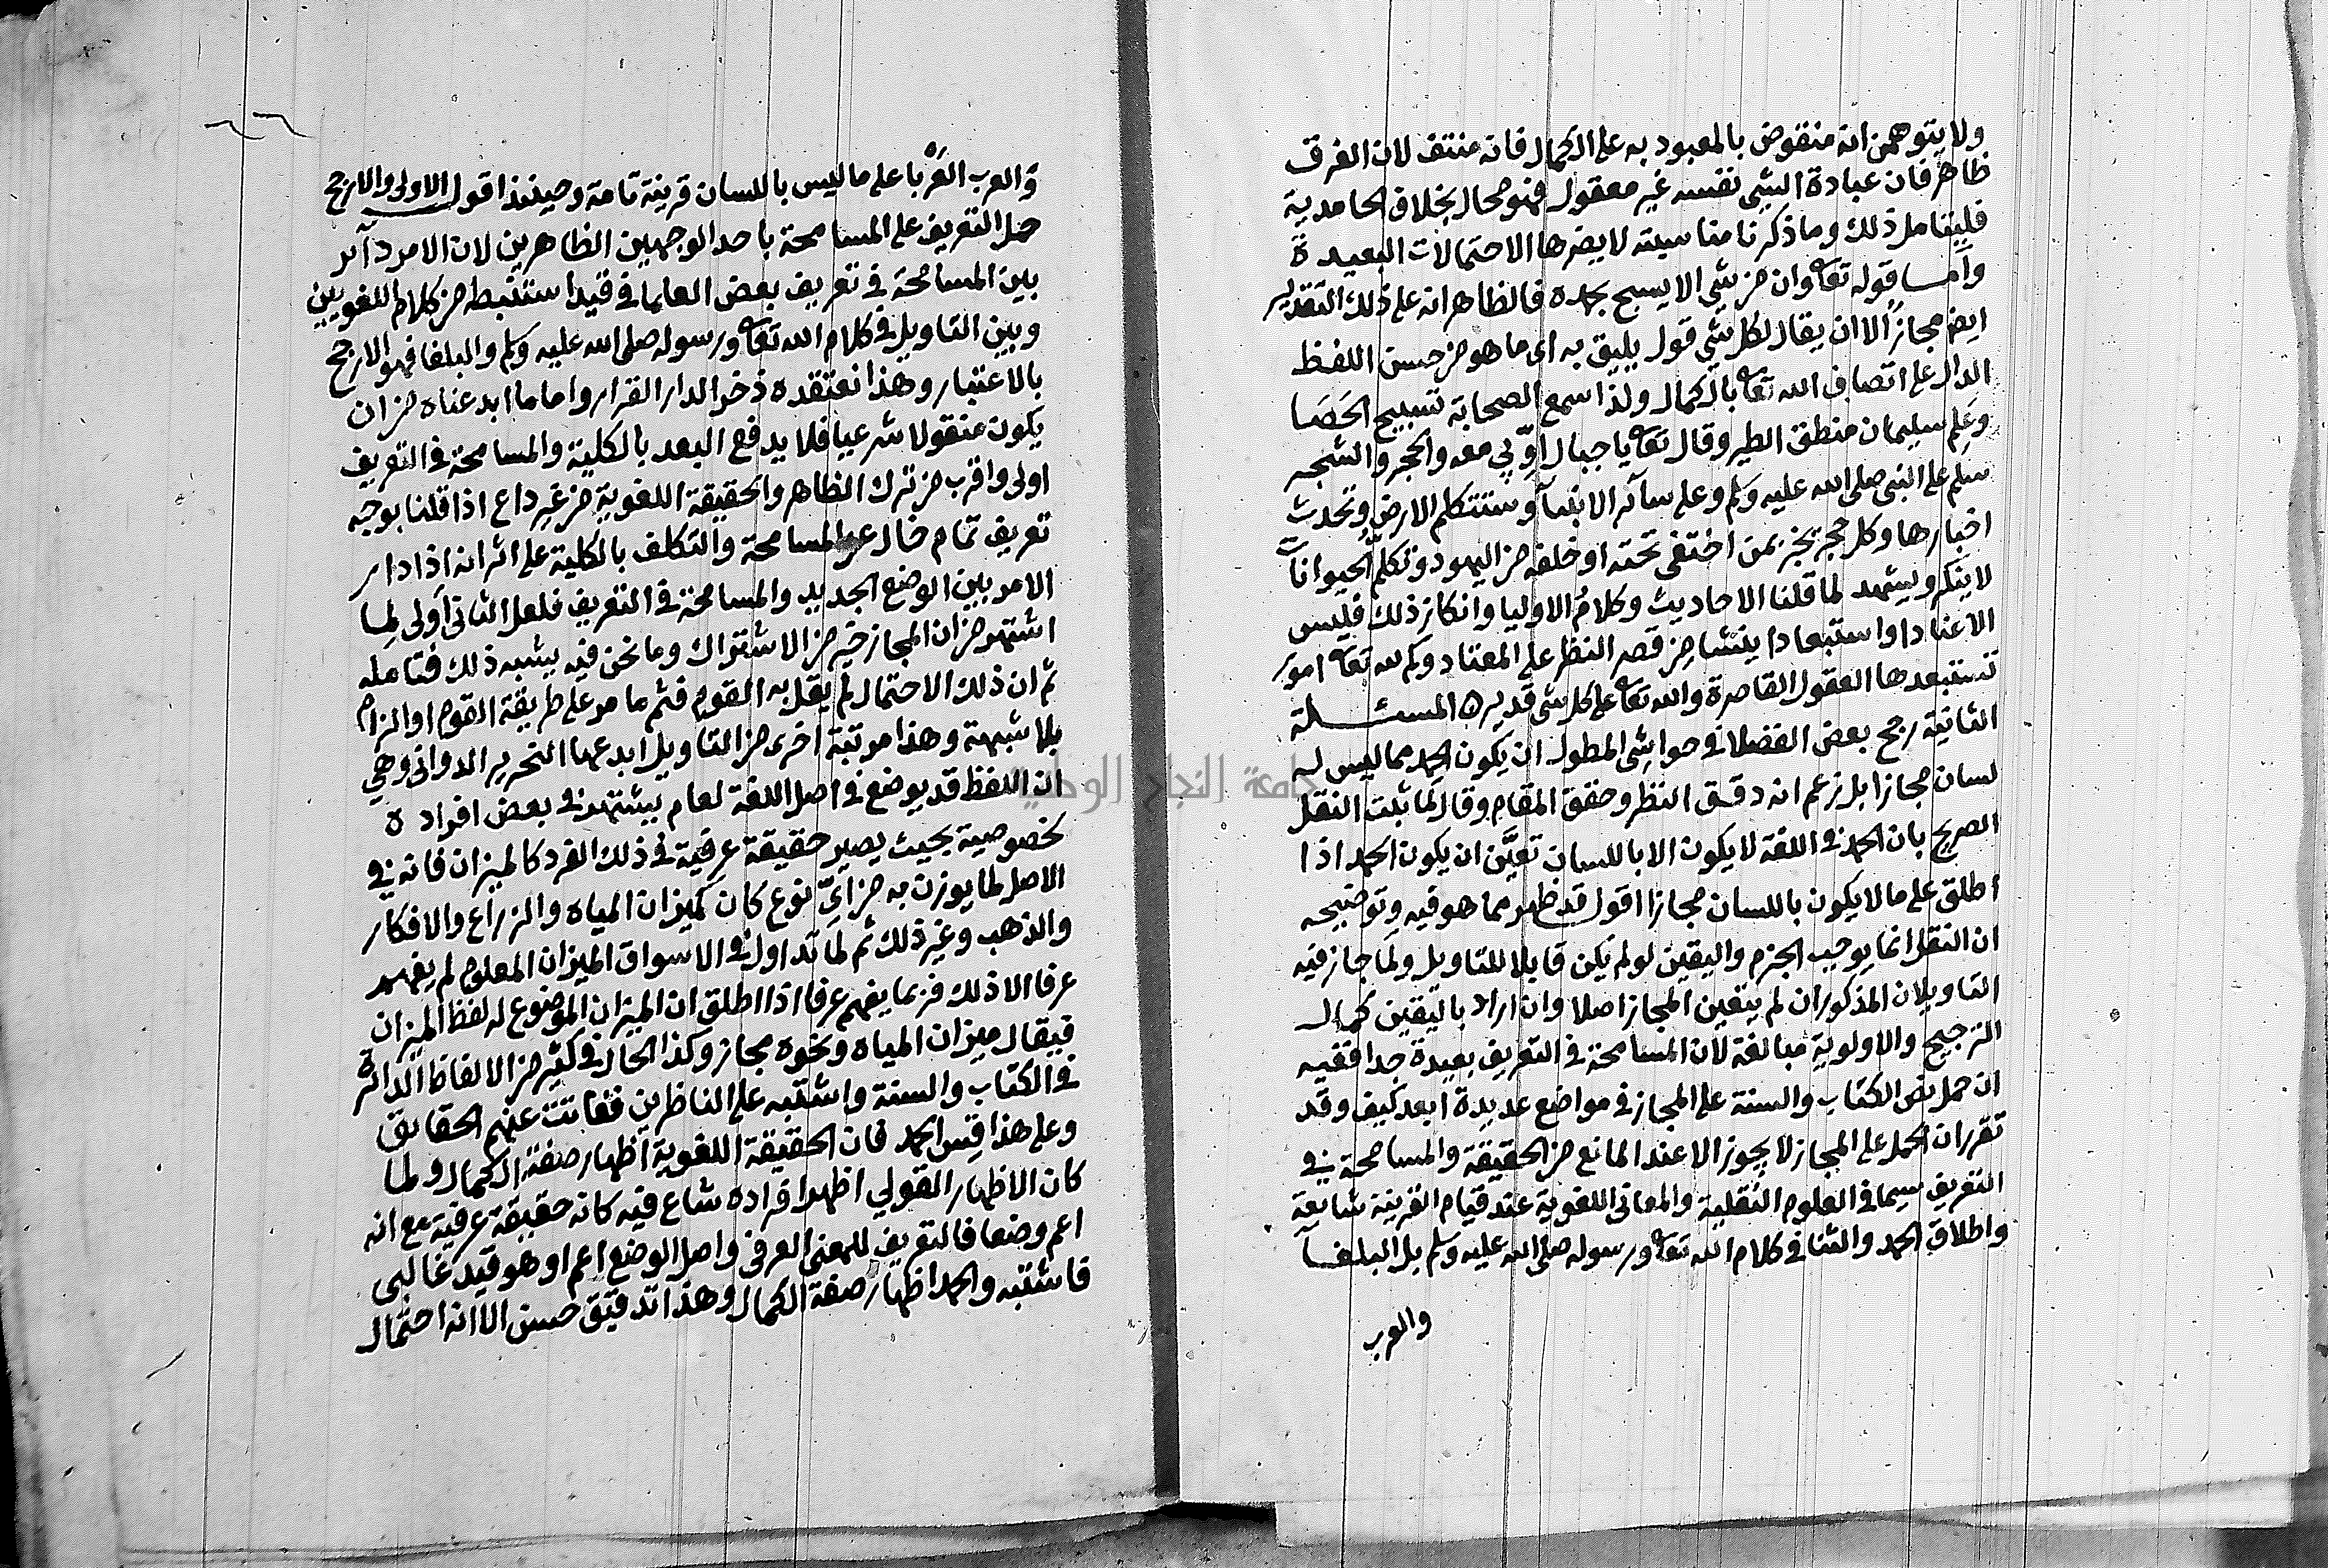 ولا يتوهمن انه منقوض بالمعبود به على الكمال فانه منتف لان الفرق
ظاهر فان عبادة الشيء نفسه غير معقول فهو محال بخلاف الحامدية
فليتامل ذلك وما ذكرنا مناسبته لا يضرها الاحتمالات البعيدة
واما قوله تعا وان من شي الا يسبح بحمده فالظاهر انه على ذلك التقدير
ايضا مجازا الا ان يقال لكل شي قول يليق به اى ما هو من حسن اللفظ
الدال على اتصاف الله تعا بالكمال ولذا سمع الصحابة تسبيح الحصا
وعلم سليمان منطق الطير وقال تعا يا جبال اوبي معه والحجر والشجر
سلم على النبى صلى الله عليه وسلم وعلى سائر الانبيآ وستتكلم الارض وتحدث
اخبارها وكل حجر يخبر بمن اختفى تحته او خلفه من اليهود وتكلم الحيوانآ
لا ينكر ويشهد لما قلنا الاحاديث وكلام الاوليا وانكار ذلك فليس
الا عنادا واستبعادا ينشا من قصر النظر على المعتاد وكم لله تعا امور
تستبعدها العقول القاصرة والله تعا على كل شى قدير ه المسئلة
الثانية رجح بعض الفضلا فى حواشى المطول ان يكون الحمد مما ليس له
لسان مجازا بل زعم انه دقق النظر وحقق المقام وقال لما ثبت النقل
الصريح بان الحمد فى اللغة لا يكون الا باللسان تعين ان يكون الحمد اذا
اطلق على ما لا يكون باللسان مجازا اقول قد ظهر مما هو فيه وتوضيحه
ان النقل انما يوجب الجزم واليقين لو لم يكن قابلا للتاويل ولما جاز فيه
التاويلان المذكوران لم يتعين المجاز اصلا وان اراد باليقين كمال
الترجيح والاولوية مبالغة لان المسامحة فى التعريف بعيدة جدا ففيه
ان حمل نص الكتاب والسنة على المجاز فى مواضع عديدة ابعد كيف وقد
تقرر ان الحمل على المجاز لا يجوز الا عند المانع من الحقيقة والمسامحة فى
التعريف سيما فى العلوم النقلية والمعانى اللغوية عند قيام القرينة شايعة
واطلاق الحمد والثنا فى كلام الله تعا ورسوله صلى الله عليه وسلم بل البلغآ
والعرب
والعرب العربا على ما ليس باللسان قرينة تامة وحينئذ اقول الاولى والارجح
حمل التعريف على المسامحة باحد الوجهين الظاهرين لان الامر دآير
بين المسامحة فى تعريف بعض العلما فى قيد استنبطه من كلام اللغويين
وبين التاويل فى كلام الله تعا ورسوله صلى الله عليه وسلم والبلغا فهو الارجح
بالاعتبار وهذا نعتقده ذخر الدار القرار واما ما ابدعناه من ان
يكون منقولا شرعيا فلا يدفع البعد بالكلية والمسامحة فى التعريف
اولى واقرب من ترك الظاهر والحقيقة اللغوية من غير داع اذا قلنا بوجه
تعريف تمام خال عن المسامحة والتكلف بالكلية على اثر انه اذا دار
الامر بين الوضع الجديد والمسامحة فى التعريف فلعل الثانى اولى لما
اشتهر من ان المجاز خير من الاشتراك وما نحن فيه يشبه ذلك فتامله
ثم ان ذلك الاحتمال لم يقل به القوم فثم ما مر على طريقة القوم او الزام
بلا شبهة وهذا مرتبة اخرى من التاويل ابدعها النحرير الدوانى وهي
ان اللفظ قد يوضع فى اصل اللغة لعام يشتهر فى بعض افراده
بخصوصية بحيث يصير حقيقة عرفية فى ذلك الفرد كالميزان فانه فى
الاصل لما يوزن به من اي نوع كان كميزان المياه والزراع والافكار
والذهب وغير ذلك ثم لما تداول فى الاسواق الميزان المعلوم لم يفهم
عرفا الا ذلك فربما يفهم عرفا اذا اطلق ان الميزان الموضوع له لفظ الميزان
فيقال ميزان المياه ونحوه مجاز وكذا الحال فى كثير من الالفاظ الدائرة
فى الكتاب والسنة واشتبه على الناظرين ففاتت عنهم الحقايق
وعلى هذا قس الحمد فان الحقيقة اللغوية اظهار صفة الكمال ولما
كان الاظهار القولي اظهر افراده شاع فيه كانه حقيقة عرفية مع انه
اعم وضعا فالتعريف للمعنى العرفى واصل الوضع اعم او هو قيد غالبى
فاشتبه والحمد اظهار صفة الكمال وهذا تدقيق حسن الا انه احتمال
جامعة النجاح الوطنية